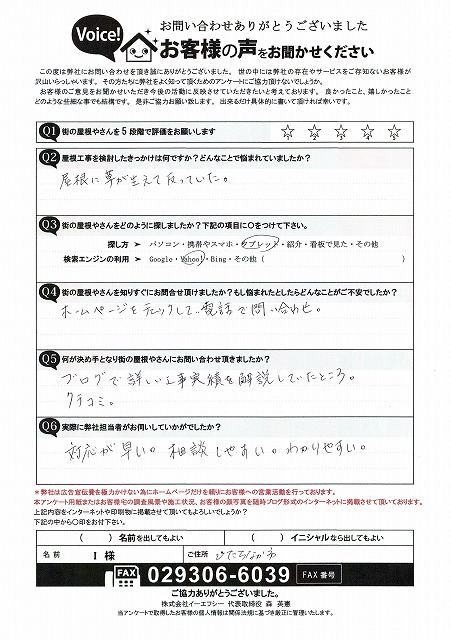 Voice!
お問い合わせありがとうございました
お客様の声をお聞かせください
この度は弊社にお問い合わせを頂き誠にありがとうございます。 世の中には弊社の存在やサービスをご存知ないお客様が
沢山いらっしゃいます。その方たちに弊社をよく知って頂くためのアンケートにご協力頂けないでしょうか。
お客様のご意見をお聞かせいただき今後の活動に反映させていただきたいと考えております。 良かったこと、嬉しかったこと
どのような些細な事でも結構です。 是非ご協力お願い致します。 出来るだけ具体的に書いて頂ければ幸いです。
Q1 街の屋根やさんを5段階で評価をお願いします ☆1 ☆2 ☆3 ☆4 ☆5
Q2 屋根工事を検討したきっかけは何ですか？どんなことで悩まれていましたか？
屋根に草が生えて反っていた。
Q3 街の屋根やさんをどのように探しましたか？下記の項目に〇をつけて下さい。
探し方 ＞ パソコン・携帯やスマホ・タブレット・紹介・看板で見た・その他
検索エンジンの利用 ＞ Google・Yahoo!・Bing・その他（ ）
Q4 街の屋根やさんを知りすぐにお問合せ頂けましたか？もし悩まれたとしたらどんなことがご不安でしたか？
ホームページをチェックして、電話で問い合わせ。
Q5 何が決め手となり街の屋根やさんにお問い合わせ頂きましたか？
ブログで詳しい工事実績を解説していたところ。
クチコミ。
Q6 実際に弊社担当者がお伺いしていかがでしたか？
対応が早い。相談しやすい。わかりやすい。
＊弊社は広告宣伝費を極力かけない為にホームページだけを頼りにお客様への営業活動を行っております。
本アンケート用紙またはお客様宅の調査風景や施工状況、お客様の顔写真を随時ブログ形式のインターネットに掲載させて頂いております。
上記内容をインターネットや印刷物に掲載させて頂いてもよろしいでしょうか？
下記の中から〇印をお付下さい。
（ ）名前を出してもよい （ ）イニシャルなら出してもよい
名前 I 様 ご住所 ひたちなか市
FAX 029306-6039 FAX番号
ご協力ありがとうございました。
株式会社イーエフシー 代表取締役 森 英憲
当アンケートで取得したお客様の個人情報は関係法規に基づき厳正に管理いたします。